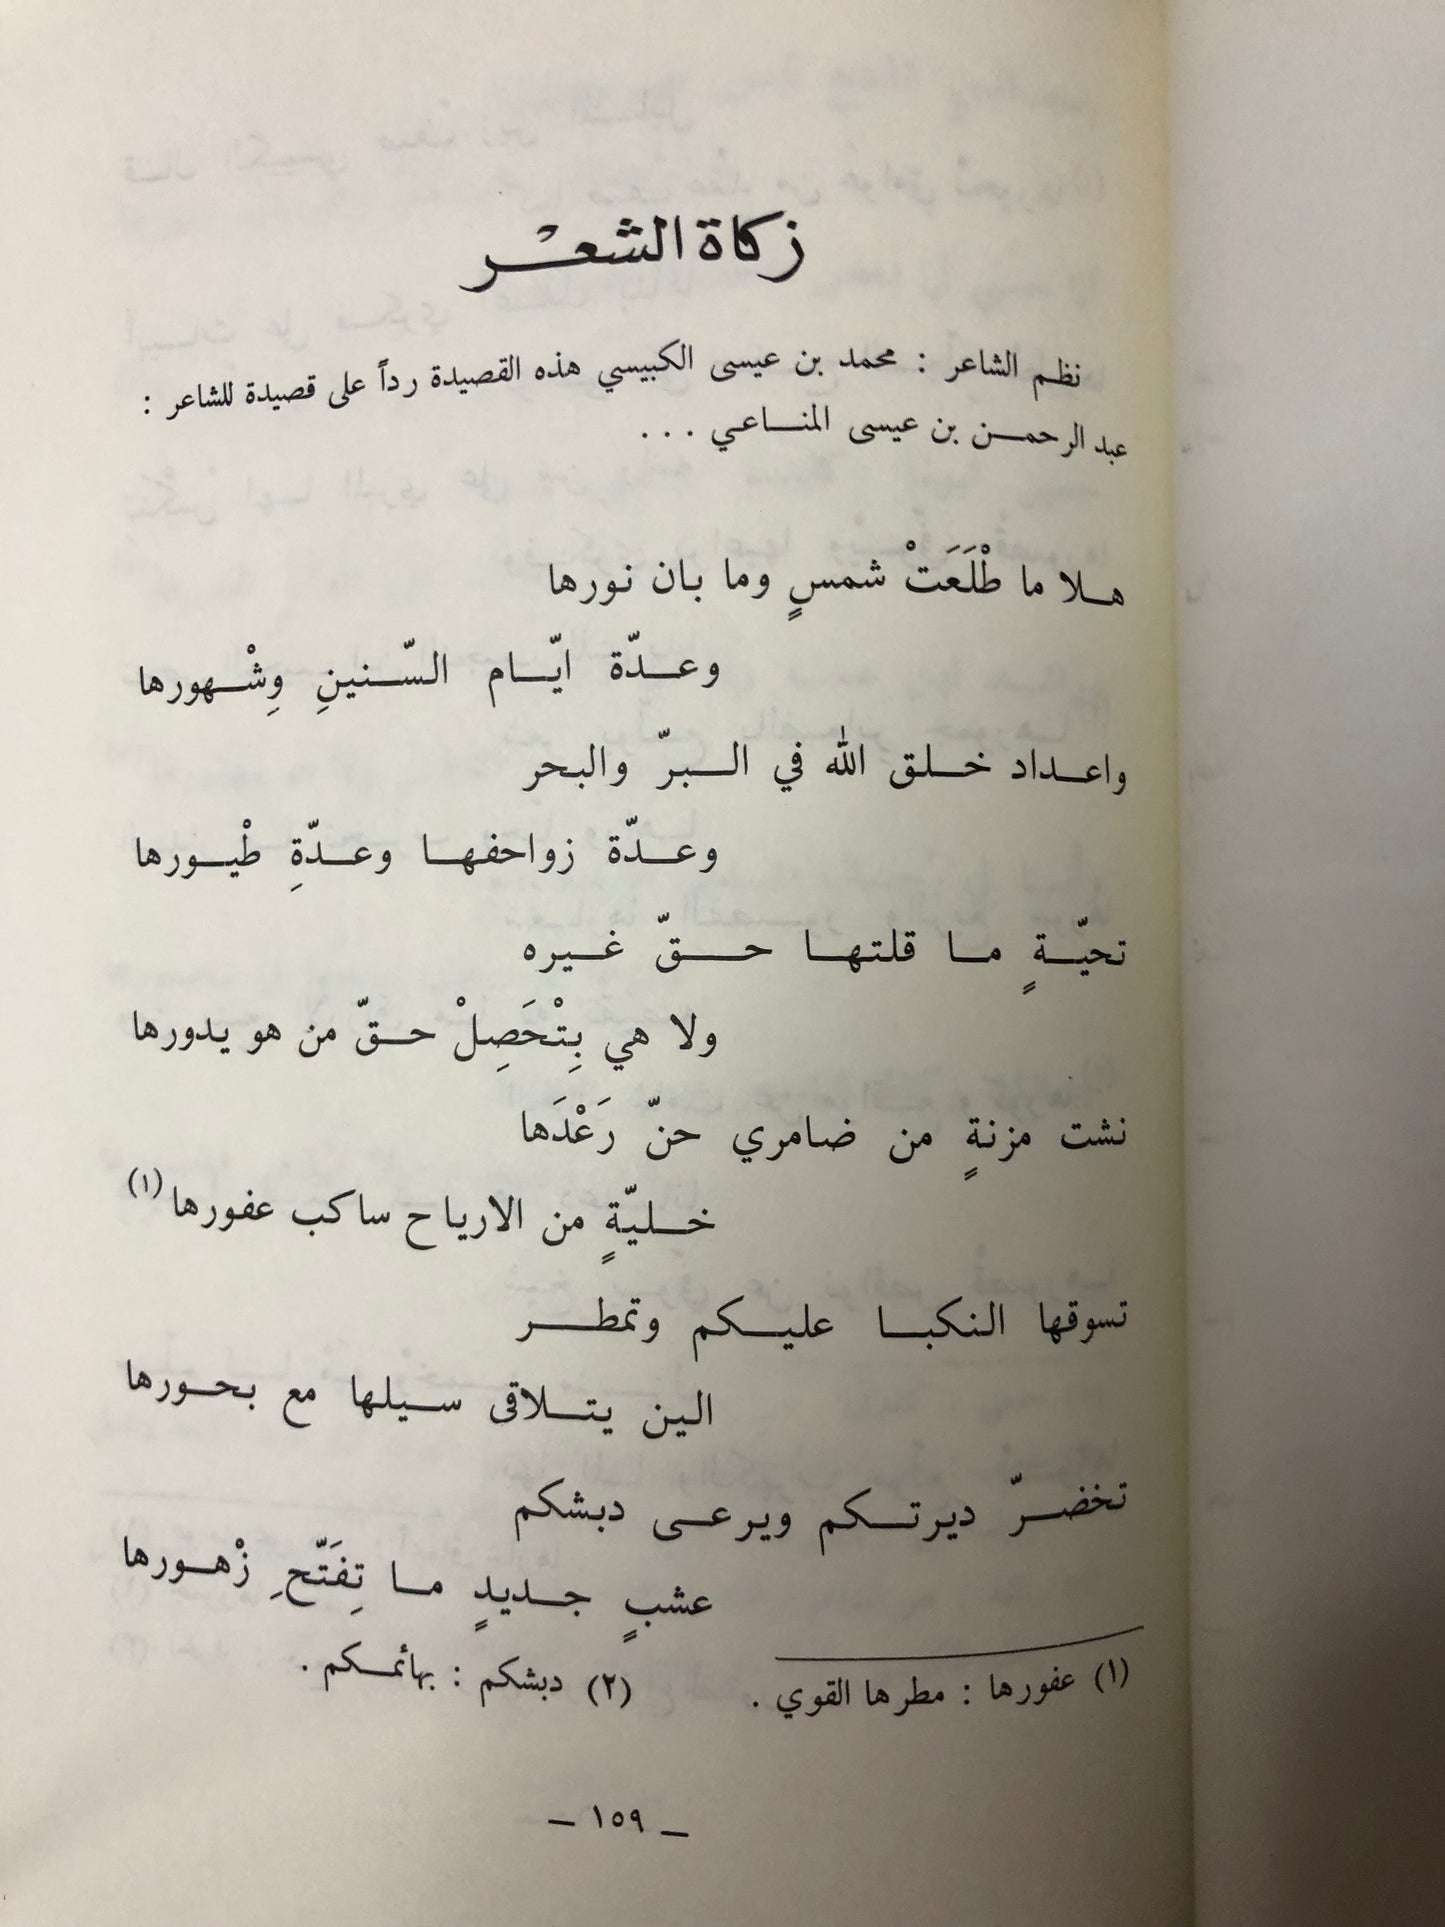 زكاة الشعْر
نظم الشاعر : محمد بن عيسى الكبيسي هذه القصيدة رداً على قصيدة للشاعر :
عبد الرحمن بن عيسى المناعي ...
هلا ما طْلَعَتْ شمسٍ وما بان نورها
وعدّة ايّام السّنينِ وِشْهورها
واعداد خلق الله في البرّ والبحر
وعدّة زواحفها وعدّةِ طْيورها
تحيّةٍ ما قلتها حقّ غيره
ولا هي بِتْحَصِلْ حقّ من هو يدورها
نشت مزنةٍ من ضامري حنّ رَعْدَها
خليّةٍ من الارياح ساكب عفورها (١)
تسوقها النكبا عليكم وتمطر
الين يتلاقى سيلها مع بحورها
تخضرّ ديرتكم ويرعى دبشكم
عشبٍ جديدٍ ما تِفَتّحِ زْهورها
(١) عفورها : مطرها القوي . (٢) دبشكم : بهائمكم .
– ١٥٩ –